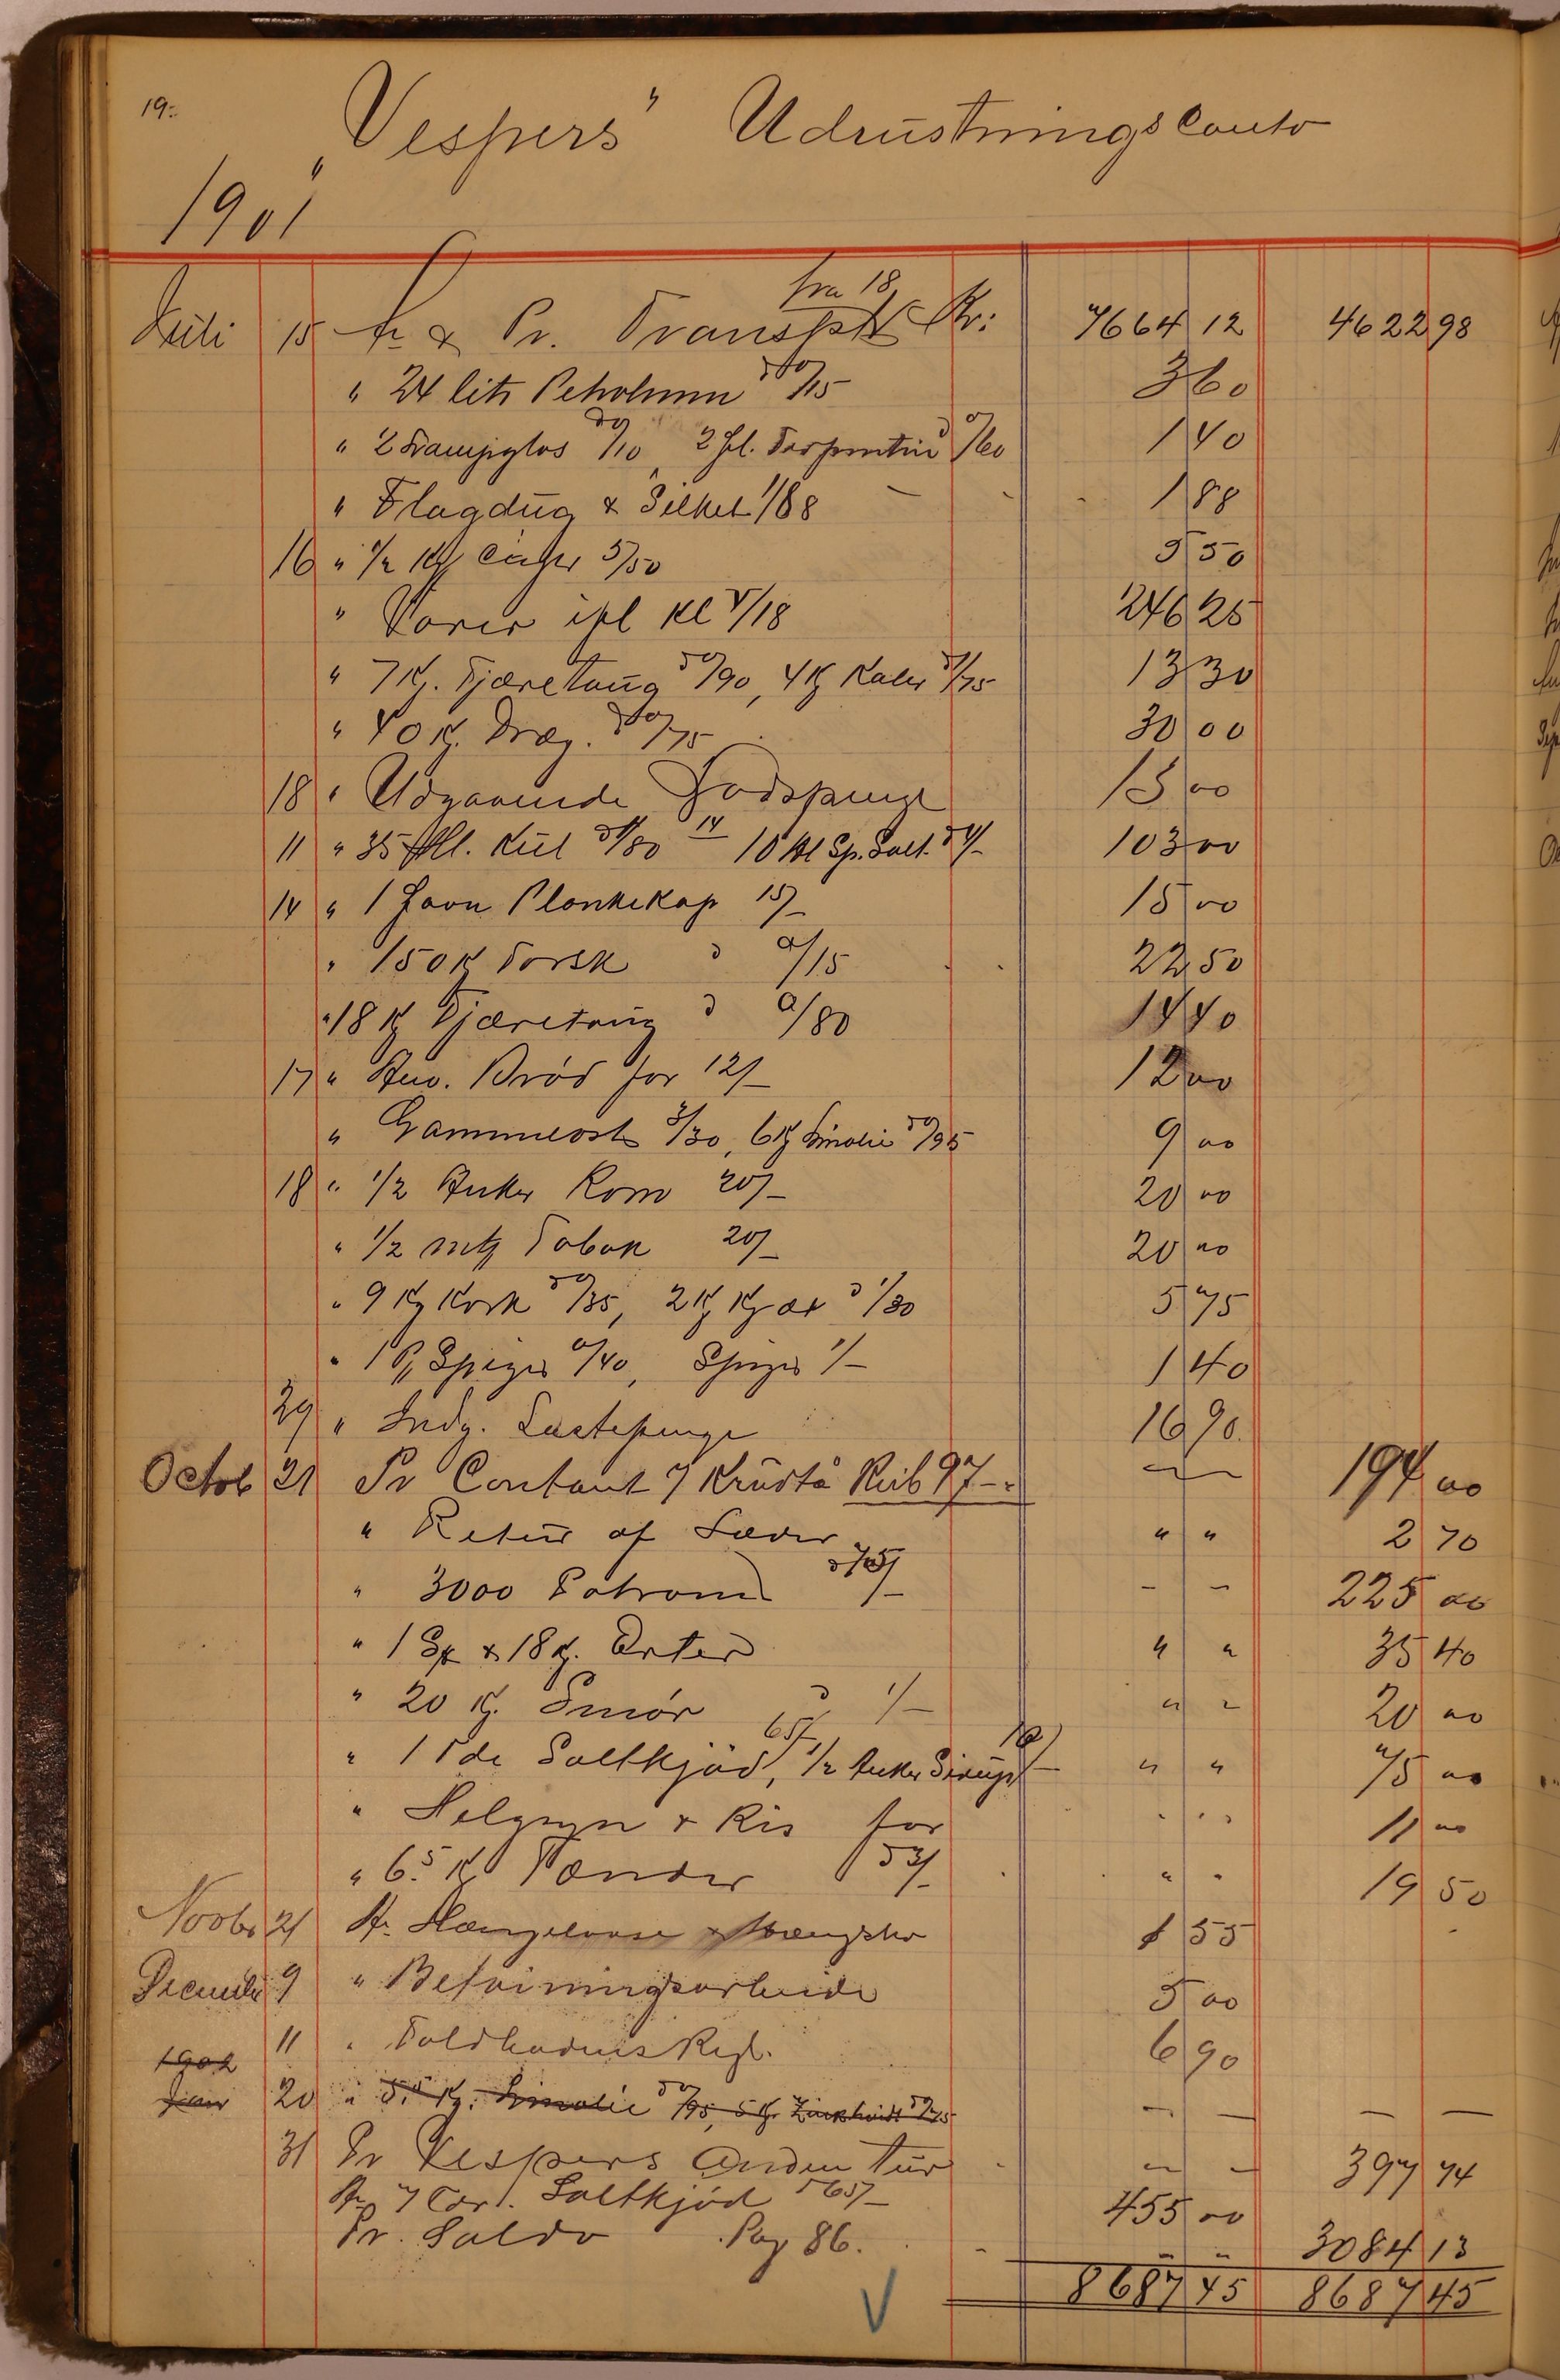 19.
„Vespers" Udrustningsconto
1901
fra 18
Juli 15 An & Pr. Transpt Kr: 7664 12 4622 98
" 24 litr Petroleum à 0/15 3 60
" 2 Lampglas à 0/10, 2 fl. Terpentin à 0/60 1 40
" Flagdug & Silket 1/88 1 88
16 " 1/2 Kg 5/50 5 50
" Varer ifl Kl 246 25
" 7 Kg. Tjæretoug à 0/90, 4 Kg à 1/75 13 30
" 40 Kg. Dræg. à 0/75 30 00
18 " Udgaaende Lodspenge 15 00
11 " 35 Hl. Kul à 1/80 14 10 Hl Sp. Salt à 4/- 103 00
14 " 1 Favn Plankekap 15/- 15 00
" 150 Kg Torsk à 0/15 22 50
" 18 Kg Tjæretoug à 0/80 14 40
17 " Brød for 12/- 12 00
" Gammelost 3/30, 6 Kg Linolie à 0/95 9 00
18 " 1/2 Anker Rom 20/- 20 00
" 1/2 Tobak 20/- 20 00
" 9 Kg Kork à 0/35, 2 Kg à 1/30 5 75
" 1 P Spiger 0/40, Spiger 1/- 1 40
29 " Indg. Lastepenge 16 90
Octob 21 Pr Contant 7 Krudtd Reib 97-: — 194 00
" Retur af Læder " " 2 70
" 3000 Patroner à 75/- - - 225 00
" 1 Sk & 18 Kg. Erter " " 35 40
" 20 Kg. Smör à 1/- " " 20 00
" 1 Tde Saltkjöd 65/-, 1/2 Anker Sirup 10/- " " 75 00
" Helgryn & Ris for " " 11 00
" 6.5 Kg Tænder à 3/- " " 19 50
Novbr 21 An Hængelaase & 1 55
Decembr 9 " Befaringsarbeide 5 00
11 " Toldbodens Regl. 6 90
1902
Jan 20 " 5.5 Kg. Linolie à 0/95, 5 Kg. Zinkhvidt à 0/75 — — — —
31 Pr Vespers Anden tur - - 397 74
An 7 Tdr. Saltkjöd à 65/- 455 00
Pr. Saldo Pag 86. - - 3084 13
8687 45 8687 45